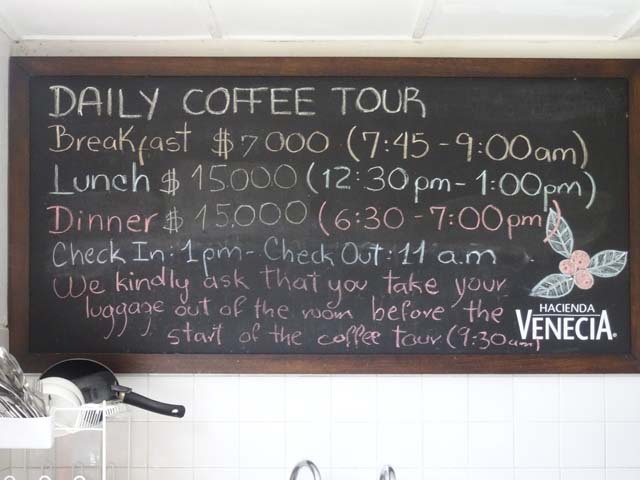 DAILY COFFEE TOUR
Breakfast $7000 (7:45 - 9:00am)
Lunch $ 15.000 (12:30pm - 1:00pm)
Dinner $ 15.000 (6:30 - 7:00pm)
Check In: 1pm - Check Out: 11 a.m
We kindly ask that you take your
luggage out of the room before the
start of the coffee tour (9:30am)
HACIENDA
VENECIA®